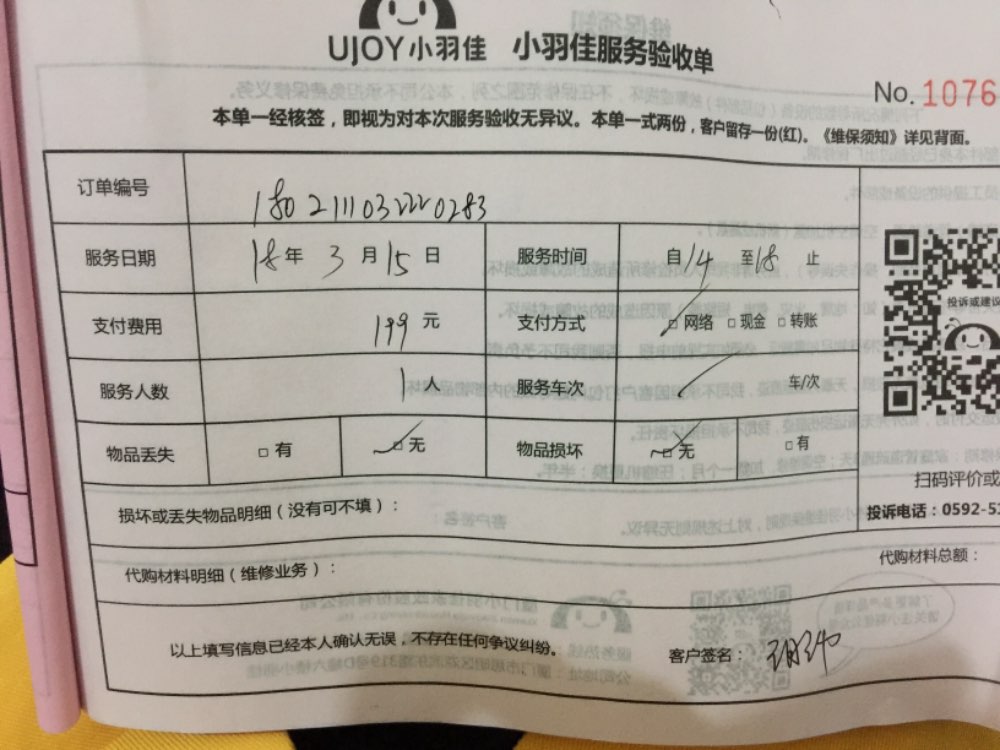 UJOY小羽佳 小羽佳服务验收单
No. 1076
本单一经核签，即视为对本次服务验收无异议。本单一式两份，客户留存一份(红)。《维保须知》详见背面。
订单编号
服务日期 18年 3月15日 服务时间 自14 至18 止
支付费用 199元 支付方式 □网络 □现金 □转账
投诉或建议
服务人数 1人 服务车次 车/次
物品丢失 □有 □无 物品损坏 □无 □有
扫码评价或
损坏或丢失物品明细（没有可不填）：
投诉电话：0592-5
代购材料明细（维修业务）： 代购材料总额：
以上填写信息已经本人确认无误，不存在任何争议纠纷。 客户签名：